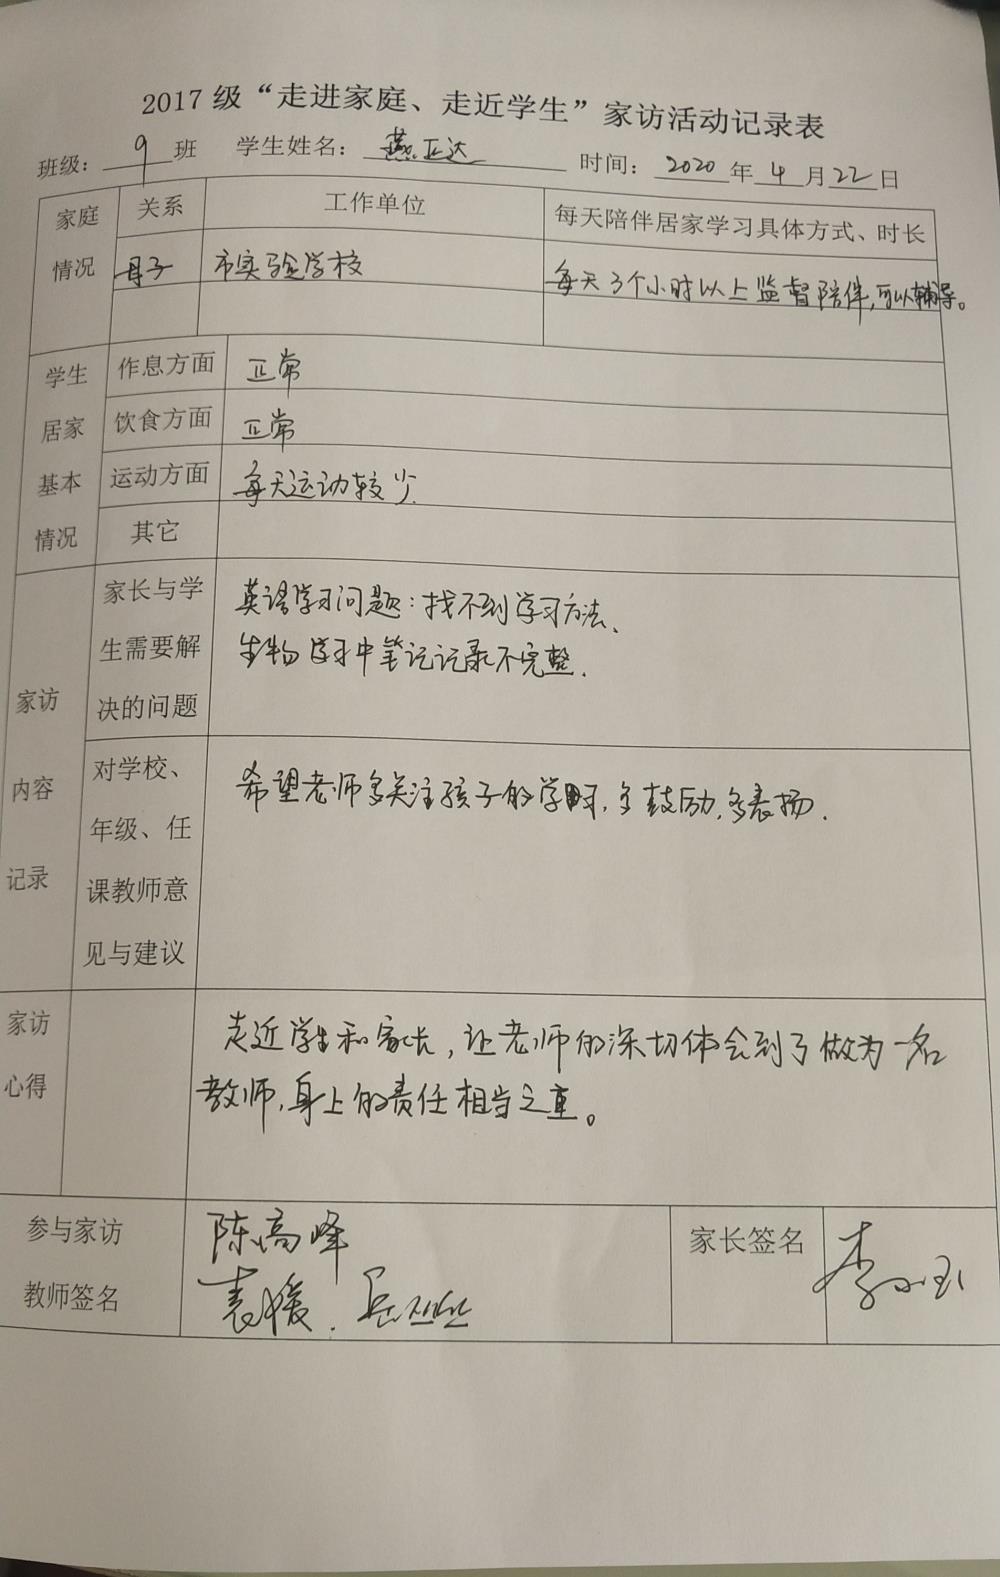 2017 级“走进家庭、走近学生”家访活动记录表
班级： 9 班 学生姓名： 燕正达 时间： 2020 年 4 月 22 日
家庭情况 关系 工作单位 每天陪伴居家学习具体方式、时长
母子 市实验学校 每天3个小时以上监督陪伴，可以辅导。
学生居家基本情况 作息方面 正常
饮食方面 正常
运动方面 每天运动较少.
其它
家访内容记录
家长与学 英语学习问题：找不到学习方法、
生需要解 生物学习中笔记记录不完整.
决的问题
对学校、 希望老师多关注孩子的学习，多鼓励，多表扬.
年级、任
课教师意
见与建议
家访 走近学生和家长，让老师的深切体会到了做为一名
心得 教师，身上的责任相当之重。
参与家访 陈高峰 家长签名
教师签名 袁媛.